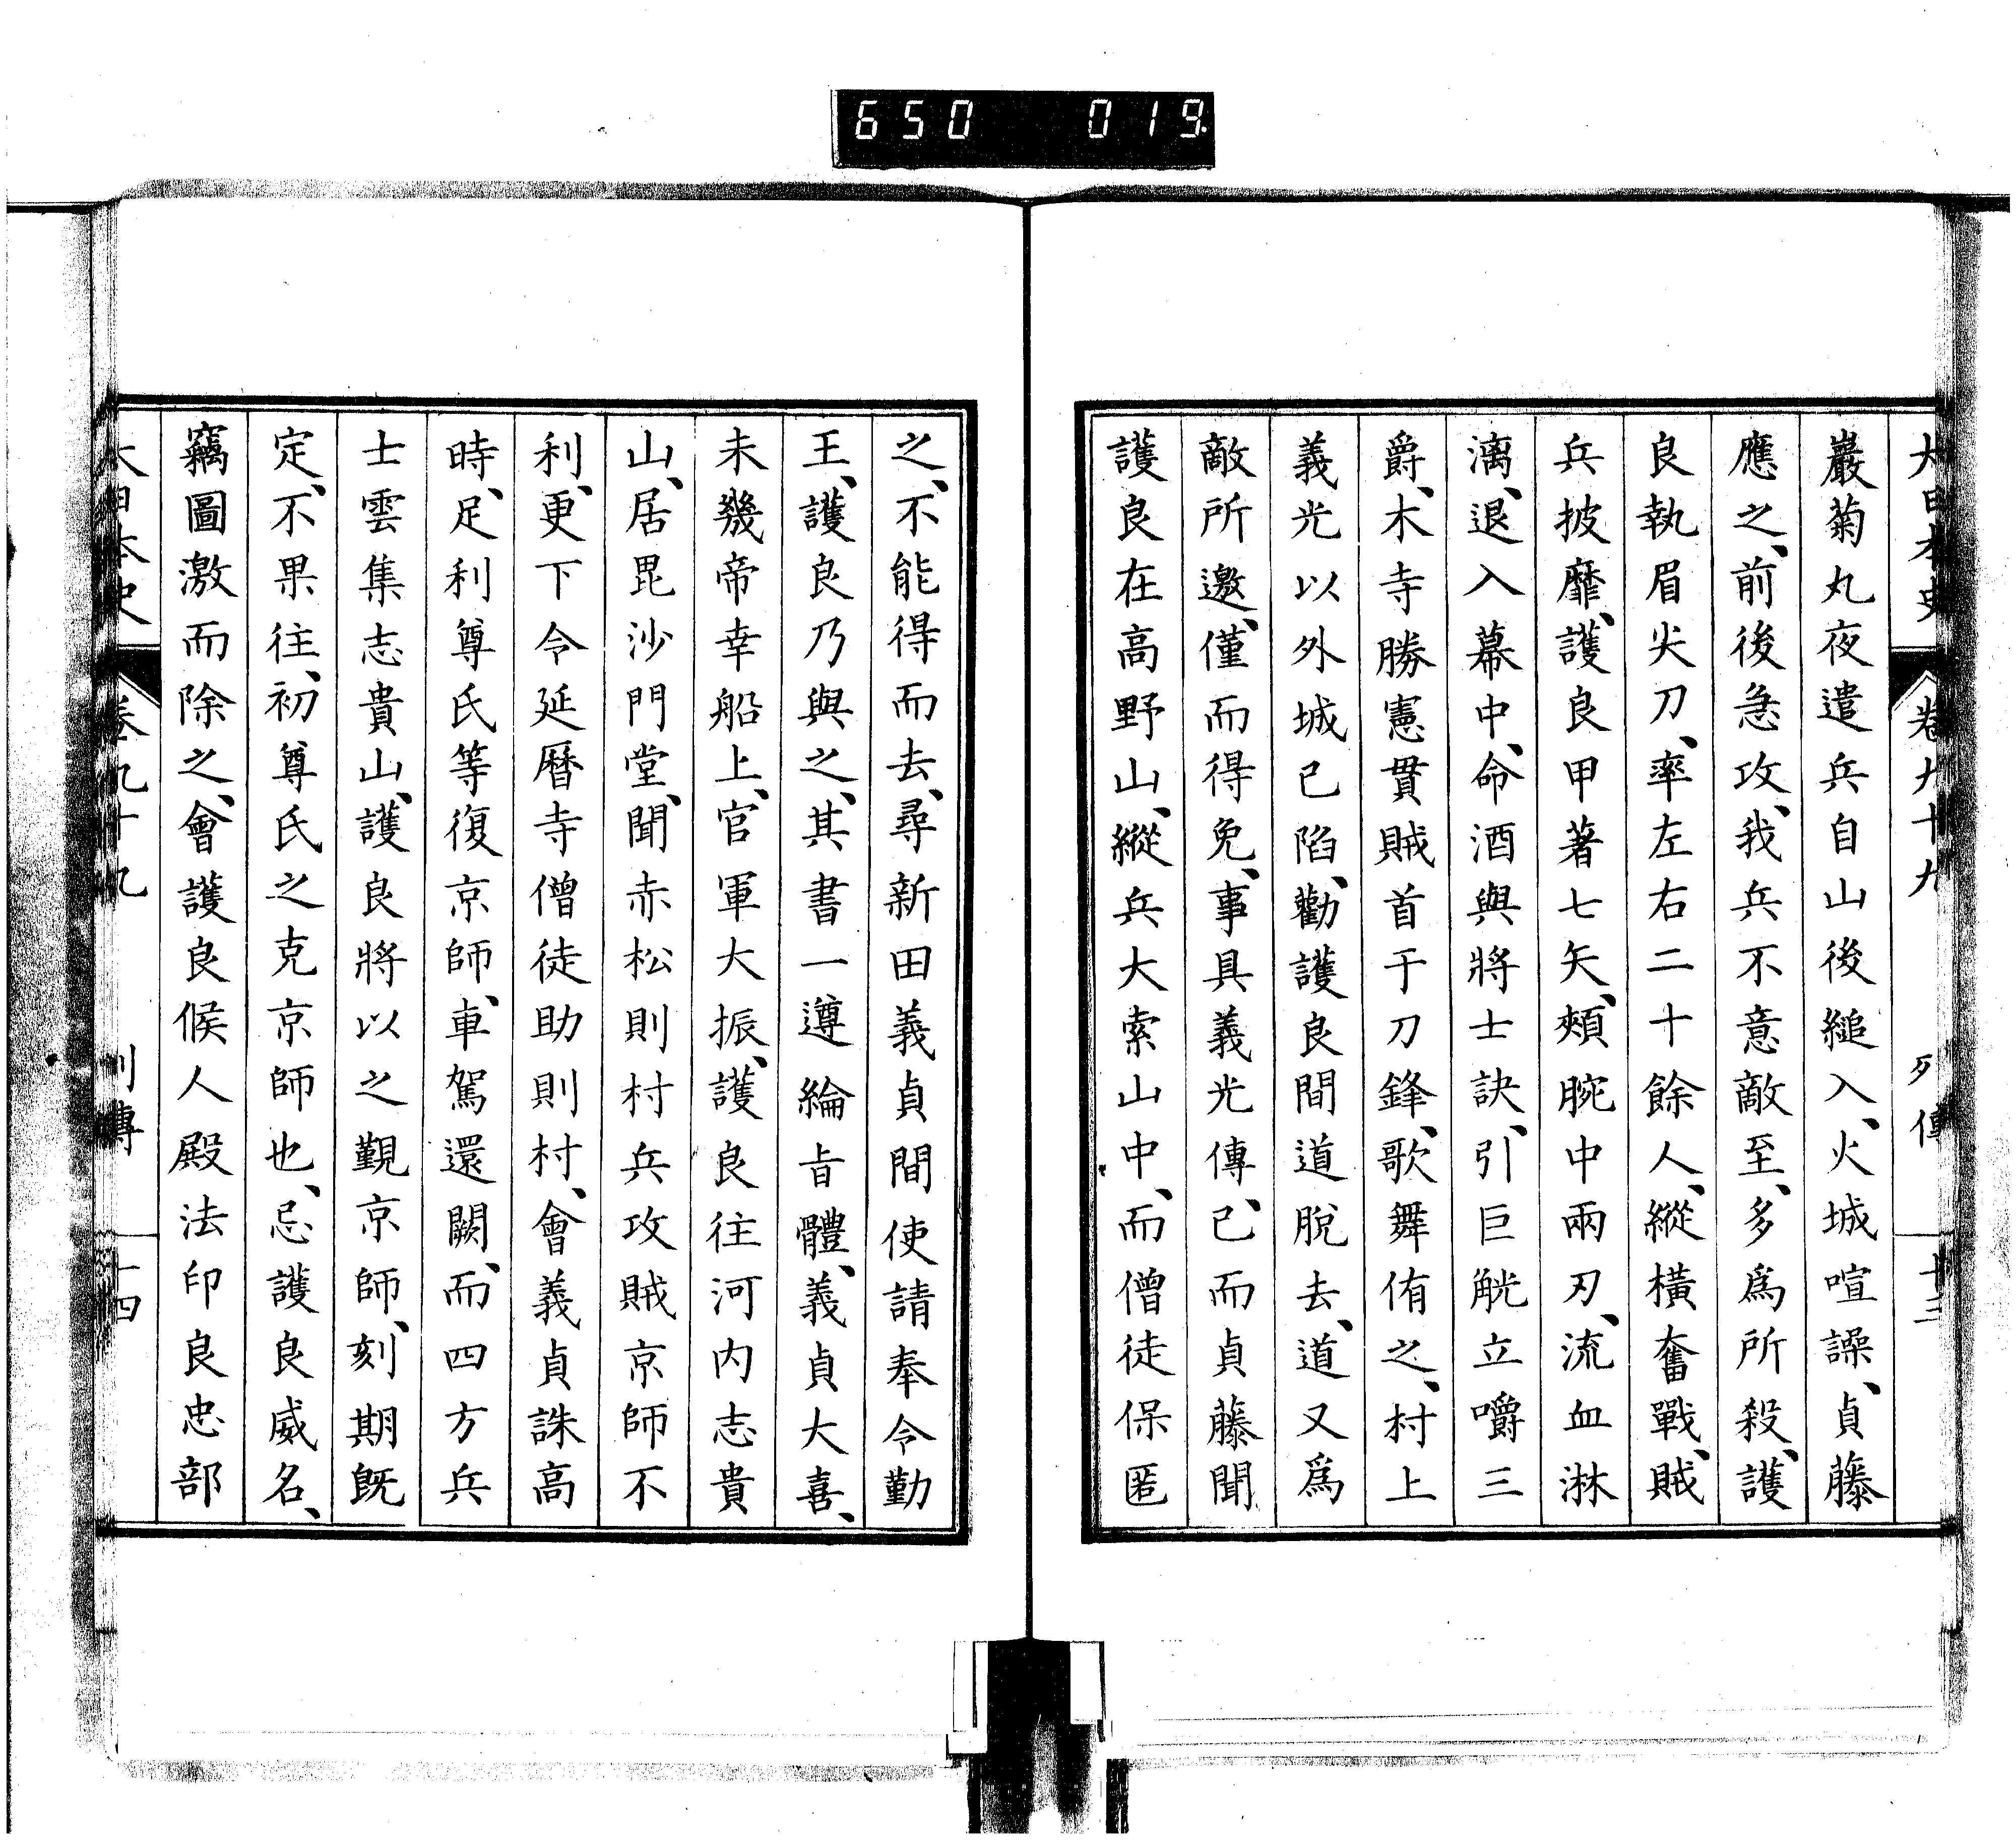 650 019
大日本史 卷九十九 列傳 十三
巖菊丸夜遣兵自山後縋入、火城喧譟、貞藤
應之、前後急攻、我兵不意敵至、多爲所殺、護
良執眉尖刀、率左右二十餘人、縱橫奮戰、賊
兵披靡、護良甲著七矢、頰腕中兩刃、流血淋
漓、退入幕中、命酒與將士訣、引巨觥立嚼三
爵、木寺勝憲貫賊首于刀鋒、歌舞侑之、村上
義光以外城已陷、勸護良間道脫去、道又爲
敵所邀、僅而得免、事具義光傳、已而貞藤聞
護良在高野山、縱兵大索山中、而僧徒保匿
之、不能得而去、尋新田義貞間使請奉令勤
王、護良乃與之、其書一遵綸旨體、義貞大喜、
未幾帝幸船上、官軍大振、護良往河內志貴
山、居毘沙門堂、聞赤松則村兵攻賊京師不
利、更下令延曆寺僧徒助則村、會義貞誅高
時、足利尊氏等復京師、車駕還闕、而四方兵
士雲集志貴山、護良將以之覲京師、刻期既
定、不果往、初尊氏之克京師也、忌護良威名、
竊圖激而除之、會護良候人殿法印良忠部
大日本史 卷九十九 列傳 十四